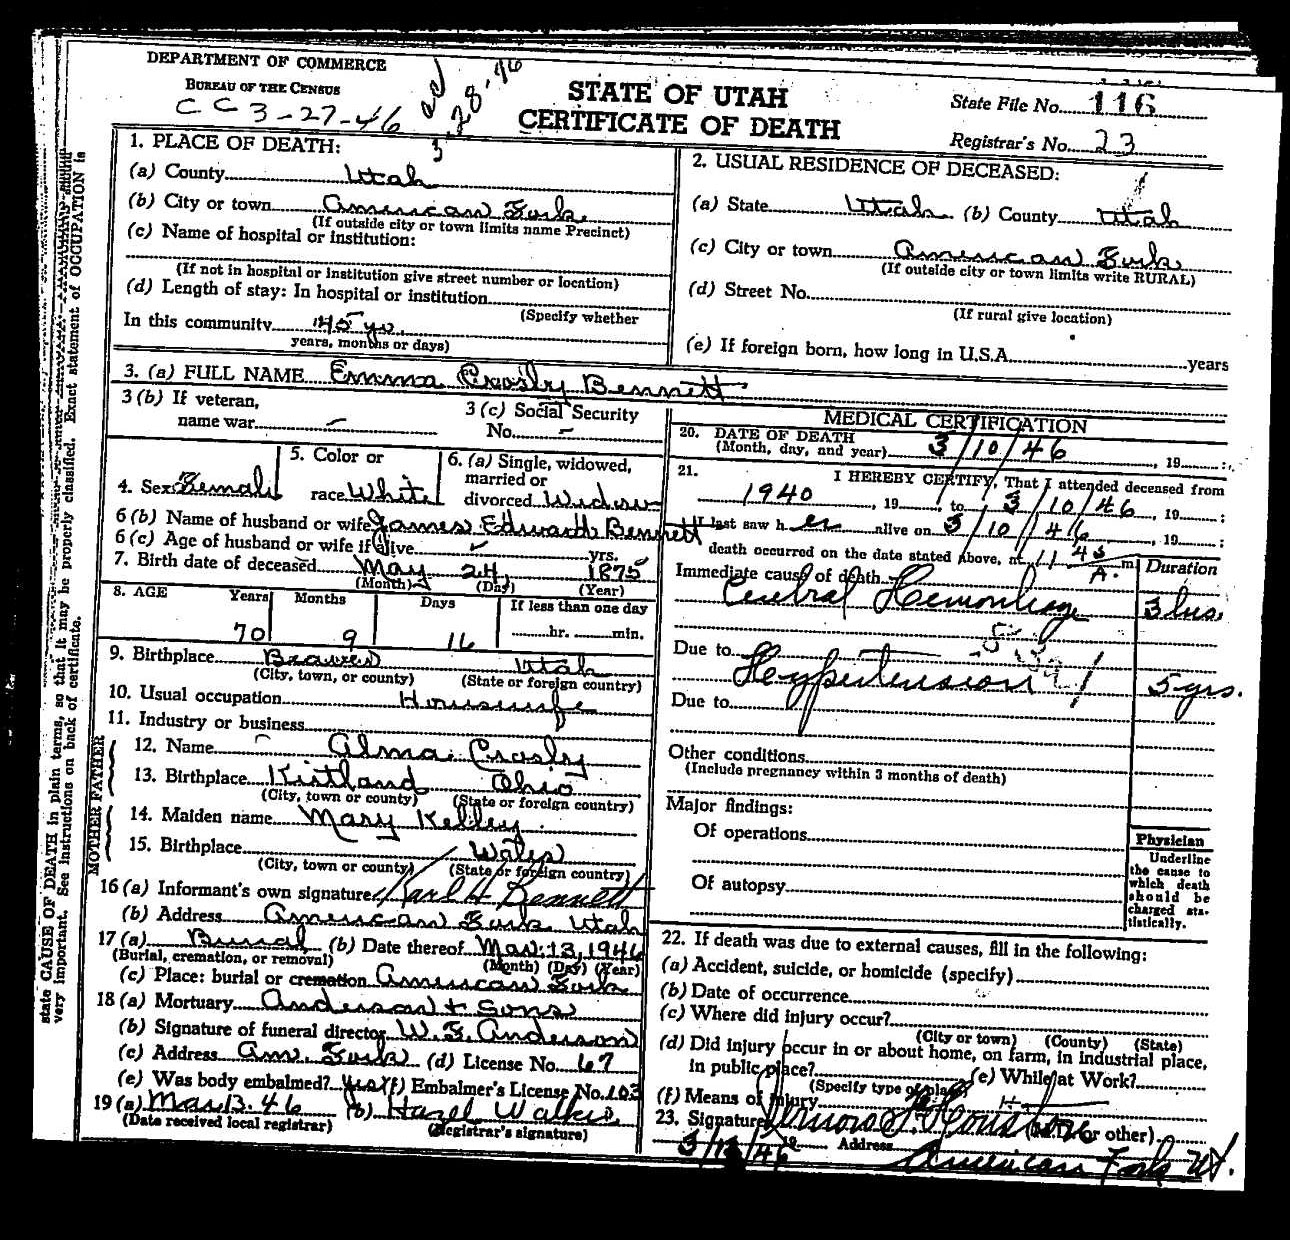 DEPARTMENT OF COMMERCE
BUREAU OF THE CENSUS
C C 3-27-46
STATE OF UTAH
CERTIFICATE OF DEATH
State File No. 116
Registrar's No. 23
1. PLACE OF DEATH:
(a) County Utah
(b) City or town American Fork
(If outside city or town limits name Precinct)
(c) Name of hospital or institution:
(If not in hospital or institution give street number or location)
(d) Length of stay: In hospital or institution
(Specify whether
In this community 45 yrs.
years, months or days)
2. USUAL RESIDENCE OF DECEASED:
(a) State Utah (b) County Utah
(c) City or town American Fork
(If outside city or town limits write RURAL)
(d) Street No.
(If rural give location)
(e) If foreign born, how long in U.S.A. years
3. (a) FULL NAME Emma Crosby Bennett
3 (b) If veteran,
name war. –
3 (c) Social Security
No. –
4. Sex Female
5. Color or
race White
6. (a) Single, widowed,
married or
divorced Widow
6 (b) Name of husband or wife James Edward Bennett
6 (c) Age of husband or wife if alive yrs.
7. Birth date of deceased May 24, 1875
(Month) (Day) (Year)
8. AGE Years Months Days If less than one day
70 9 16 hr. min.
9. Birthplace Beaver Utah
(City, town, or county) (State or foreign country)
10. Usual occupation Housewife
11. Industry or business
FATHER
12. Name Alma Crosby
13. Birthplace Kirtland Ohio
(City, town or county) (State or foreign country)
MOTHER
14. Maiden name Mary Kelley
15. Birthplace Wales
(City, town or county) (State or foreign country)
16 (a) Informant's own signature Karl H. Bennett
(b) Address American Fork Utah
17 (a) Burial (b) Date thereof Mar. 13, 1946
(Burial, cremation, or removal) (Month) (Day) (Year)
(c) Place: burial or cremation American Fork
18 (a) Mortuary Anderson & Sons
(b) Signature of funeral director W. E. Anderson
(c) Address Am. Fork (d) License No. 67
(e) Was body embalmed? yes (f) Embalmer's License No. 103
19 (a) Mar 13. 46 (b) Hazel Walker
(Date received local registrar) (Registrar's signature)
MEDICAL CERTIFICATION
20. DATE OF DEATH
(Month, day, and year) 3/10/46, 19 :
21. I HEREBY CERTIFY, That I attended deceased from
1940, 19 , to 3/10/46, 19 ;
I last saw her alive on 3/10/46, 19 ;
death occurred on the date stated above, at 11 45 A. m
Immediate cause of death Duration
Cerebral Hemorrhage 3 hrs.
Due to
Heypertension 5 yrs.
Due to
Other conditions
(Include pregnancy within 3 months of death)
Major findings:
Of operations
Of autopsy
Physician
Underline
the cause to
which death
should be
charged sta-
tistically.
22. If death was due to external causes, fill in the following:
(a) Accident, suicide, or homicide (specify)
(b) Date of occurrence
(c) Where did injury occur?
(City or town) (County) (State)
(d) Did injury occur in or about home, on farm, in industrial place,
in public place? (e) While at Work?
(Specify type of place)
(f) Means of injury
23. Signature Houston (M.D. or other)
3/12/46 19 Address American Fork Ut.
state CAUSE OF DEATH in plain terms, so that it may be properly classified. Exact statement of OCCUPATION is
very important. See instructions on back of certificate.